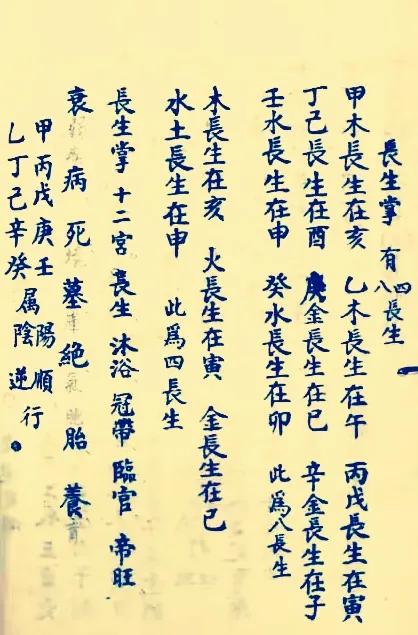 長生掌 有四八長生
甲木長生在亥 乙木長生在午 丙戊長生在寅
丁己長生在酉 庚金長生在巳 辛金長生在子
壬水長生在申 癸水長生在卯 此爲八長生
木長生在亥 火長生在寅 金長生在巳
水土長生在申 此爲四長生
長生掌 十二宮 長生 沐浴 冠帶 臨官 帝旺
衰 病 死 墓 絶 胎 養
甲丙戊庚壬 陽順行
乙丁己辛癸 属陰逆